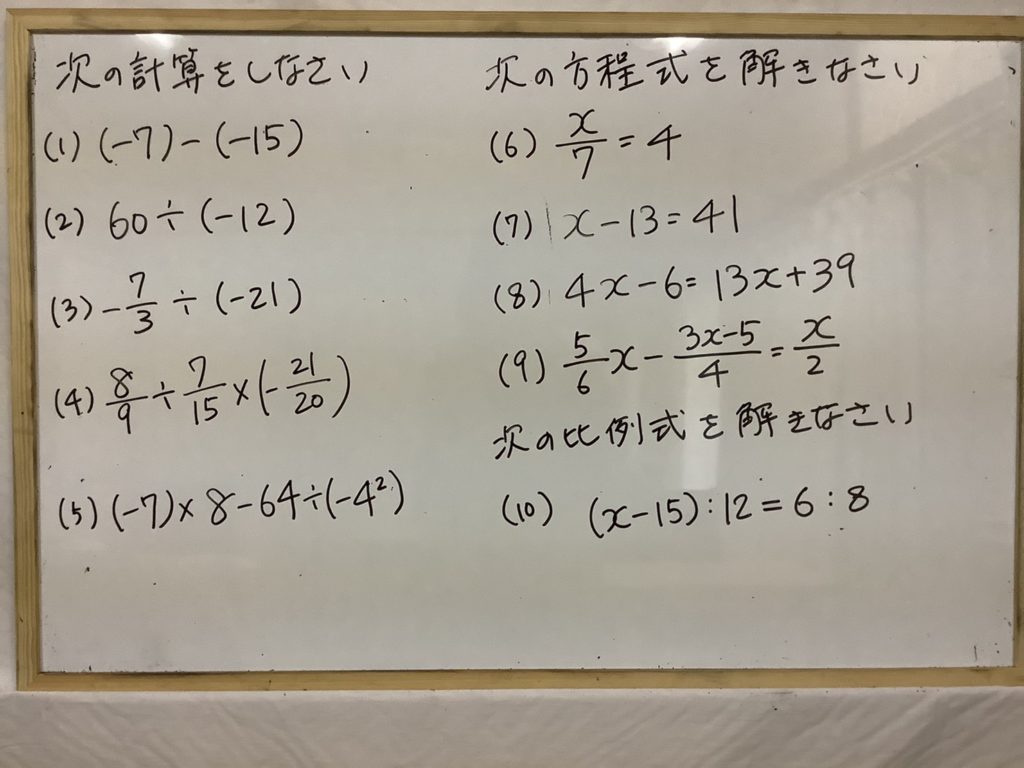 次の計算をしなさい
(1) (-7)-(-15)
(2) 60÷(-12)
(3) -7/3÷(-21)
(4) 8/9÷7/15×(-21/20)
(5) (-7)×8-64÷(-4²)
次の方程式を解きなさい
(6) x/7=4
(7) x-13=41
(8) 4x-6=13x+39
(9) 5/6x-3x-5/4=x/2
次の比例式を解きなさい
(10) (x-15):12=6:8